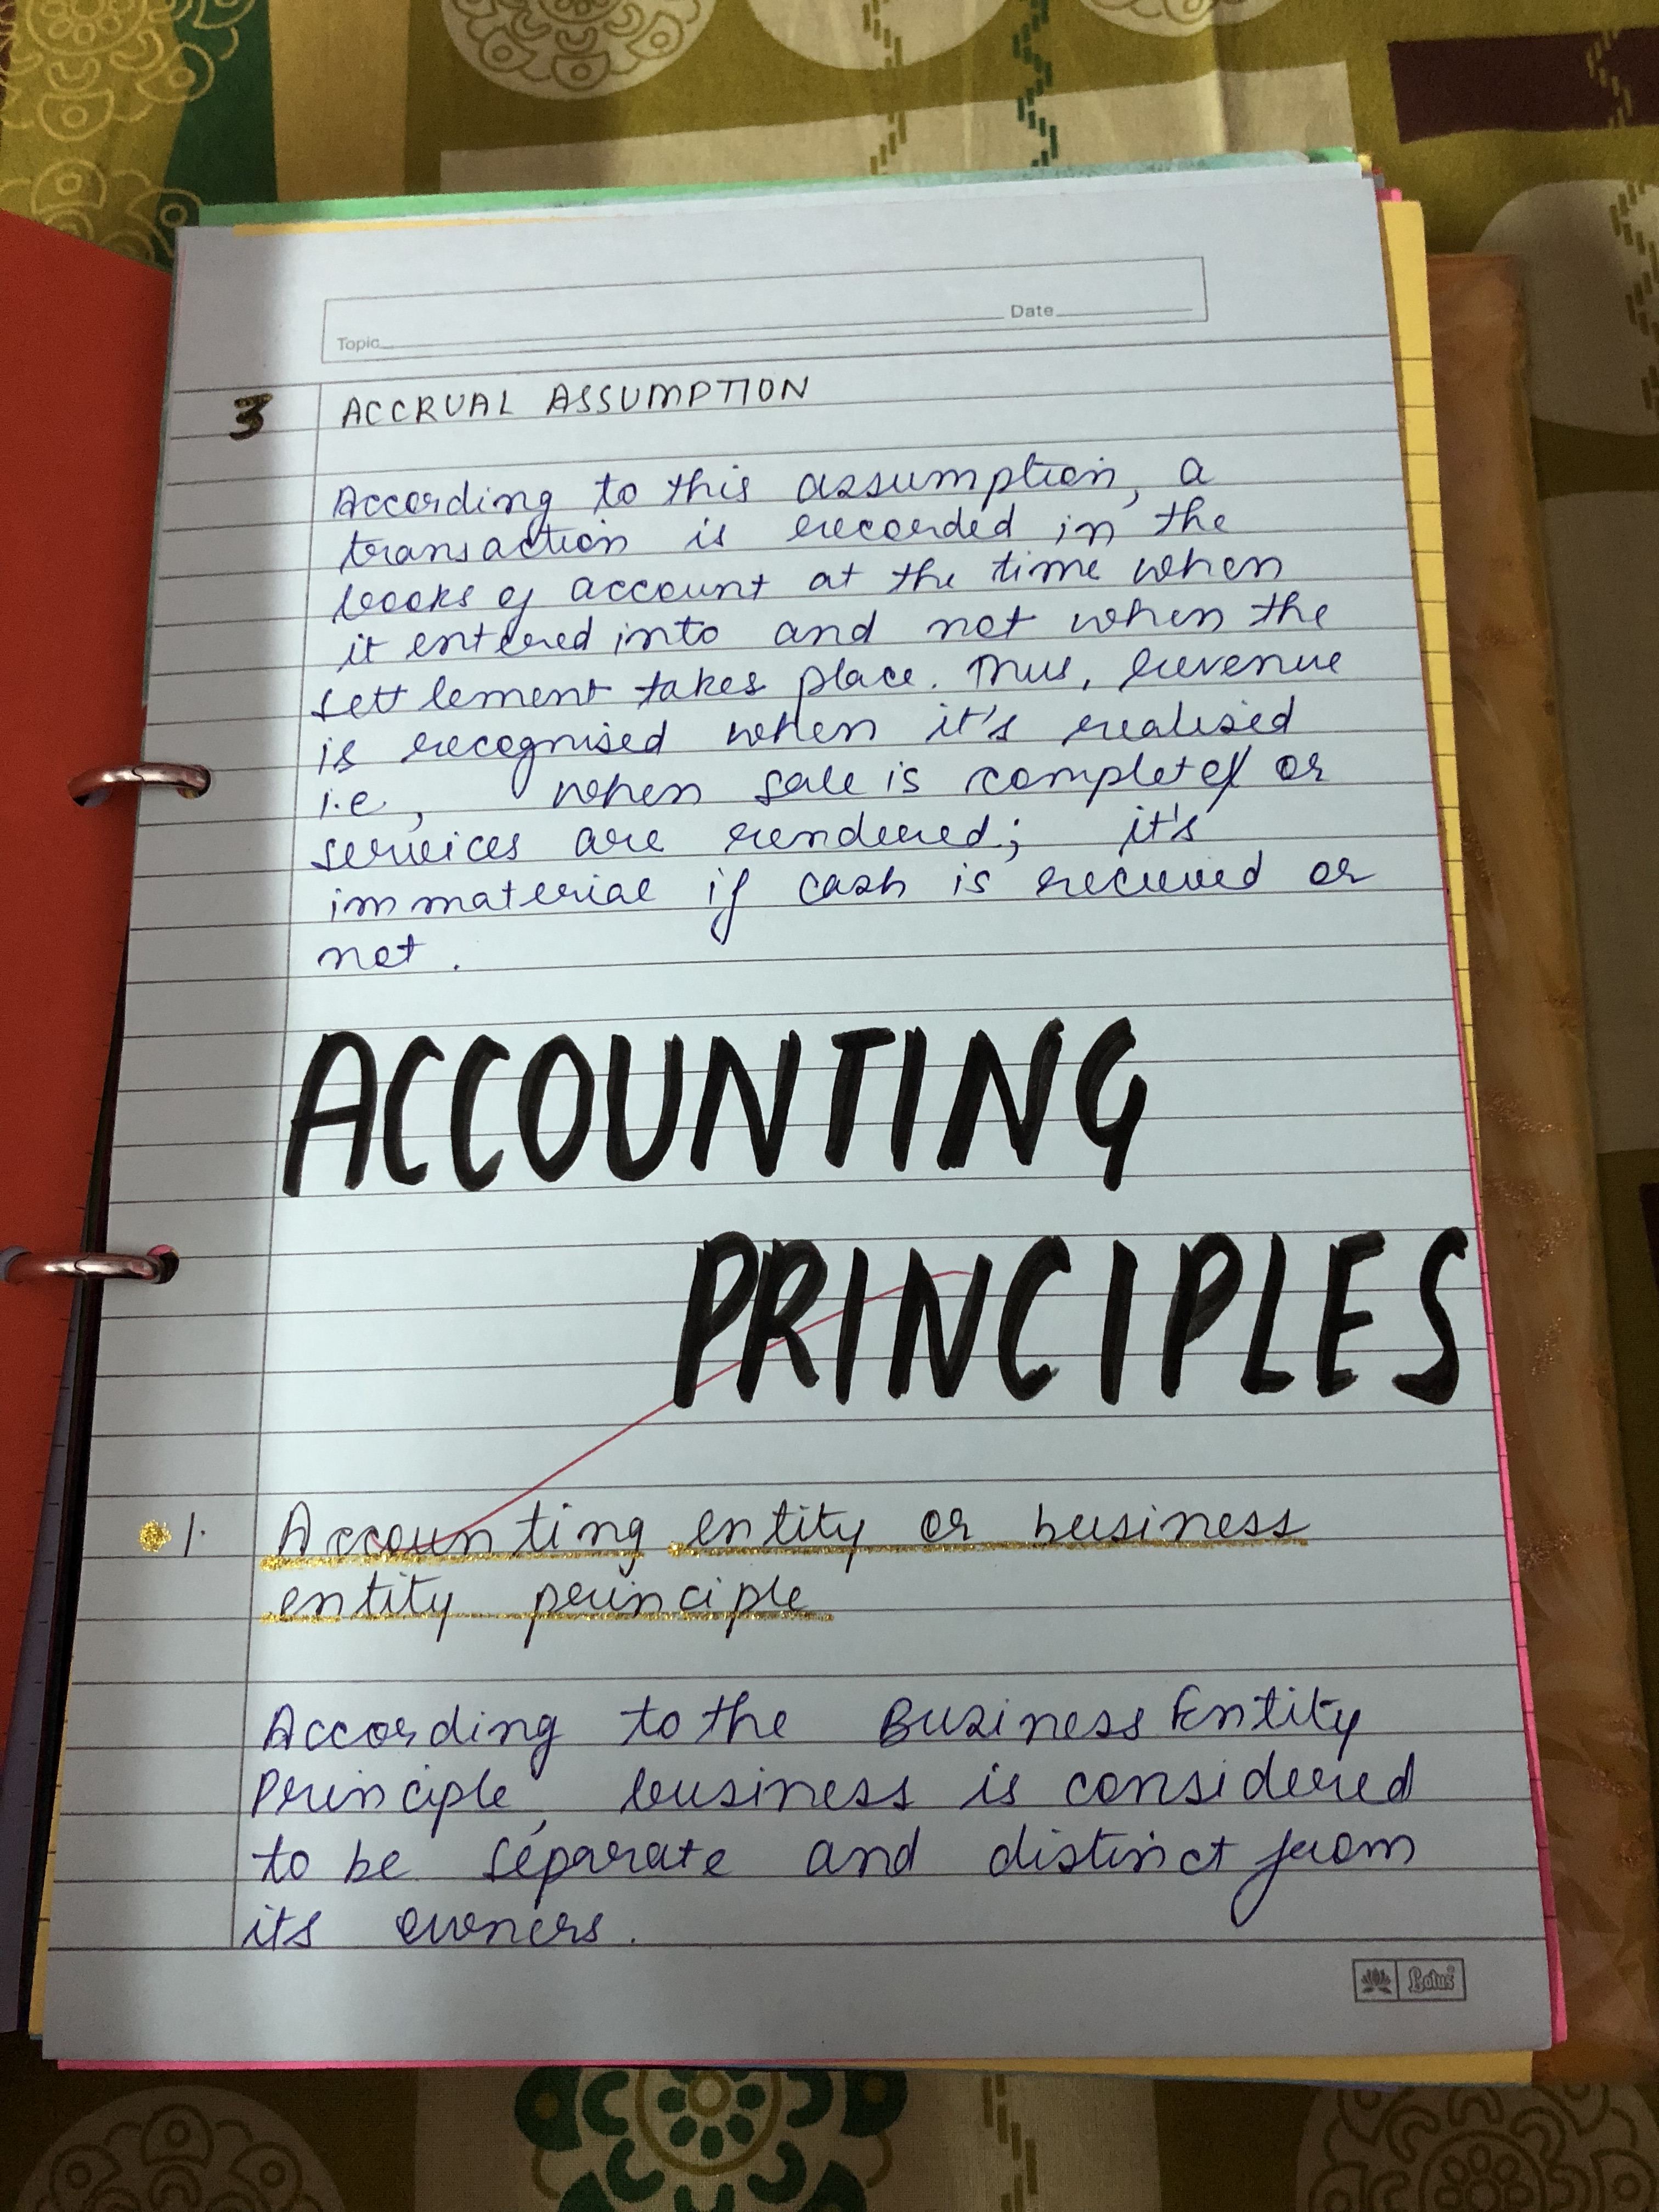 Topic Date
3 ACCRUAL ASSUMPTION
According to this assumption, a
transaction is recorded in the
books of account at the time when
it entered into and not when the
settlement takes place. Thus, revenue
is recognised when it's realised
i.e, when sale is complete or
services are rendered; it's
immaterial if cash is recieved or
not.
ACCOUNTING
PRINCIPLES
1. Accounting entity or business
entity principle
According to the Business Entity
Principle, business is considered
to be separate and distinct from
its owners.
Lotus